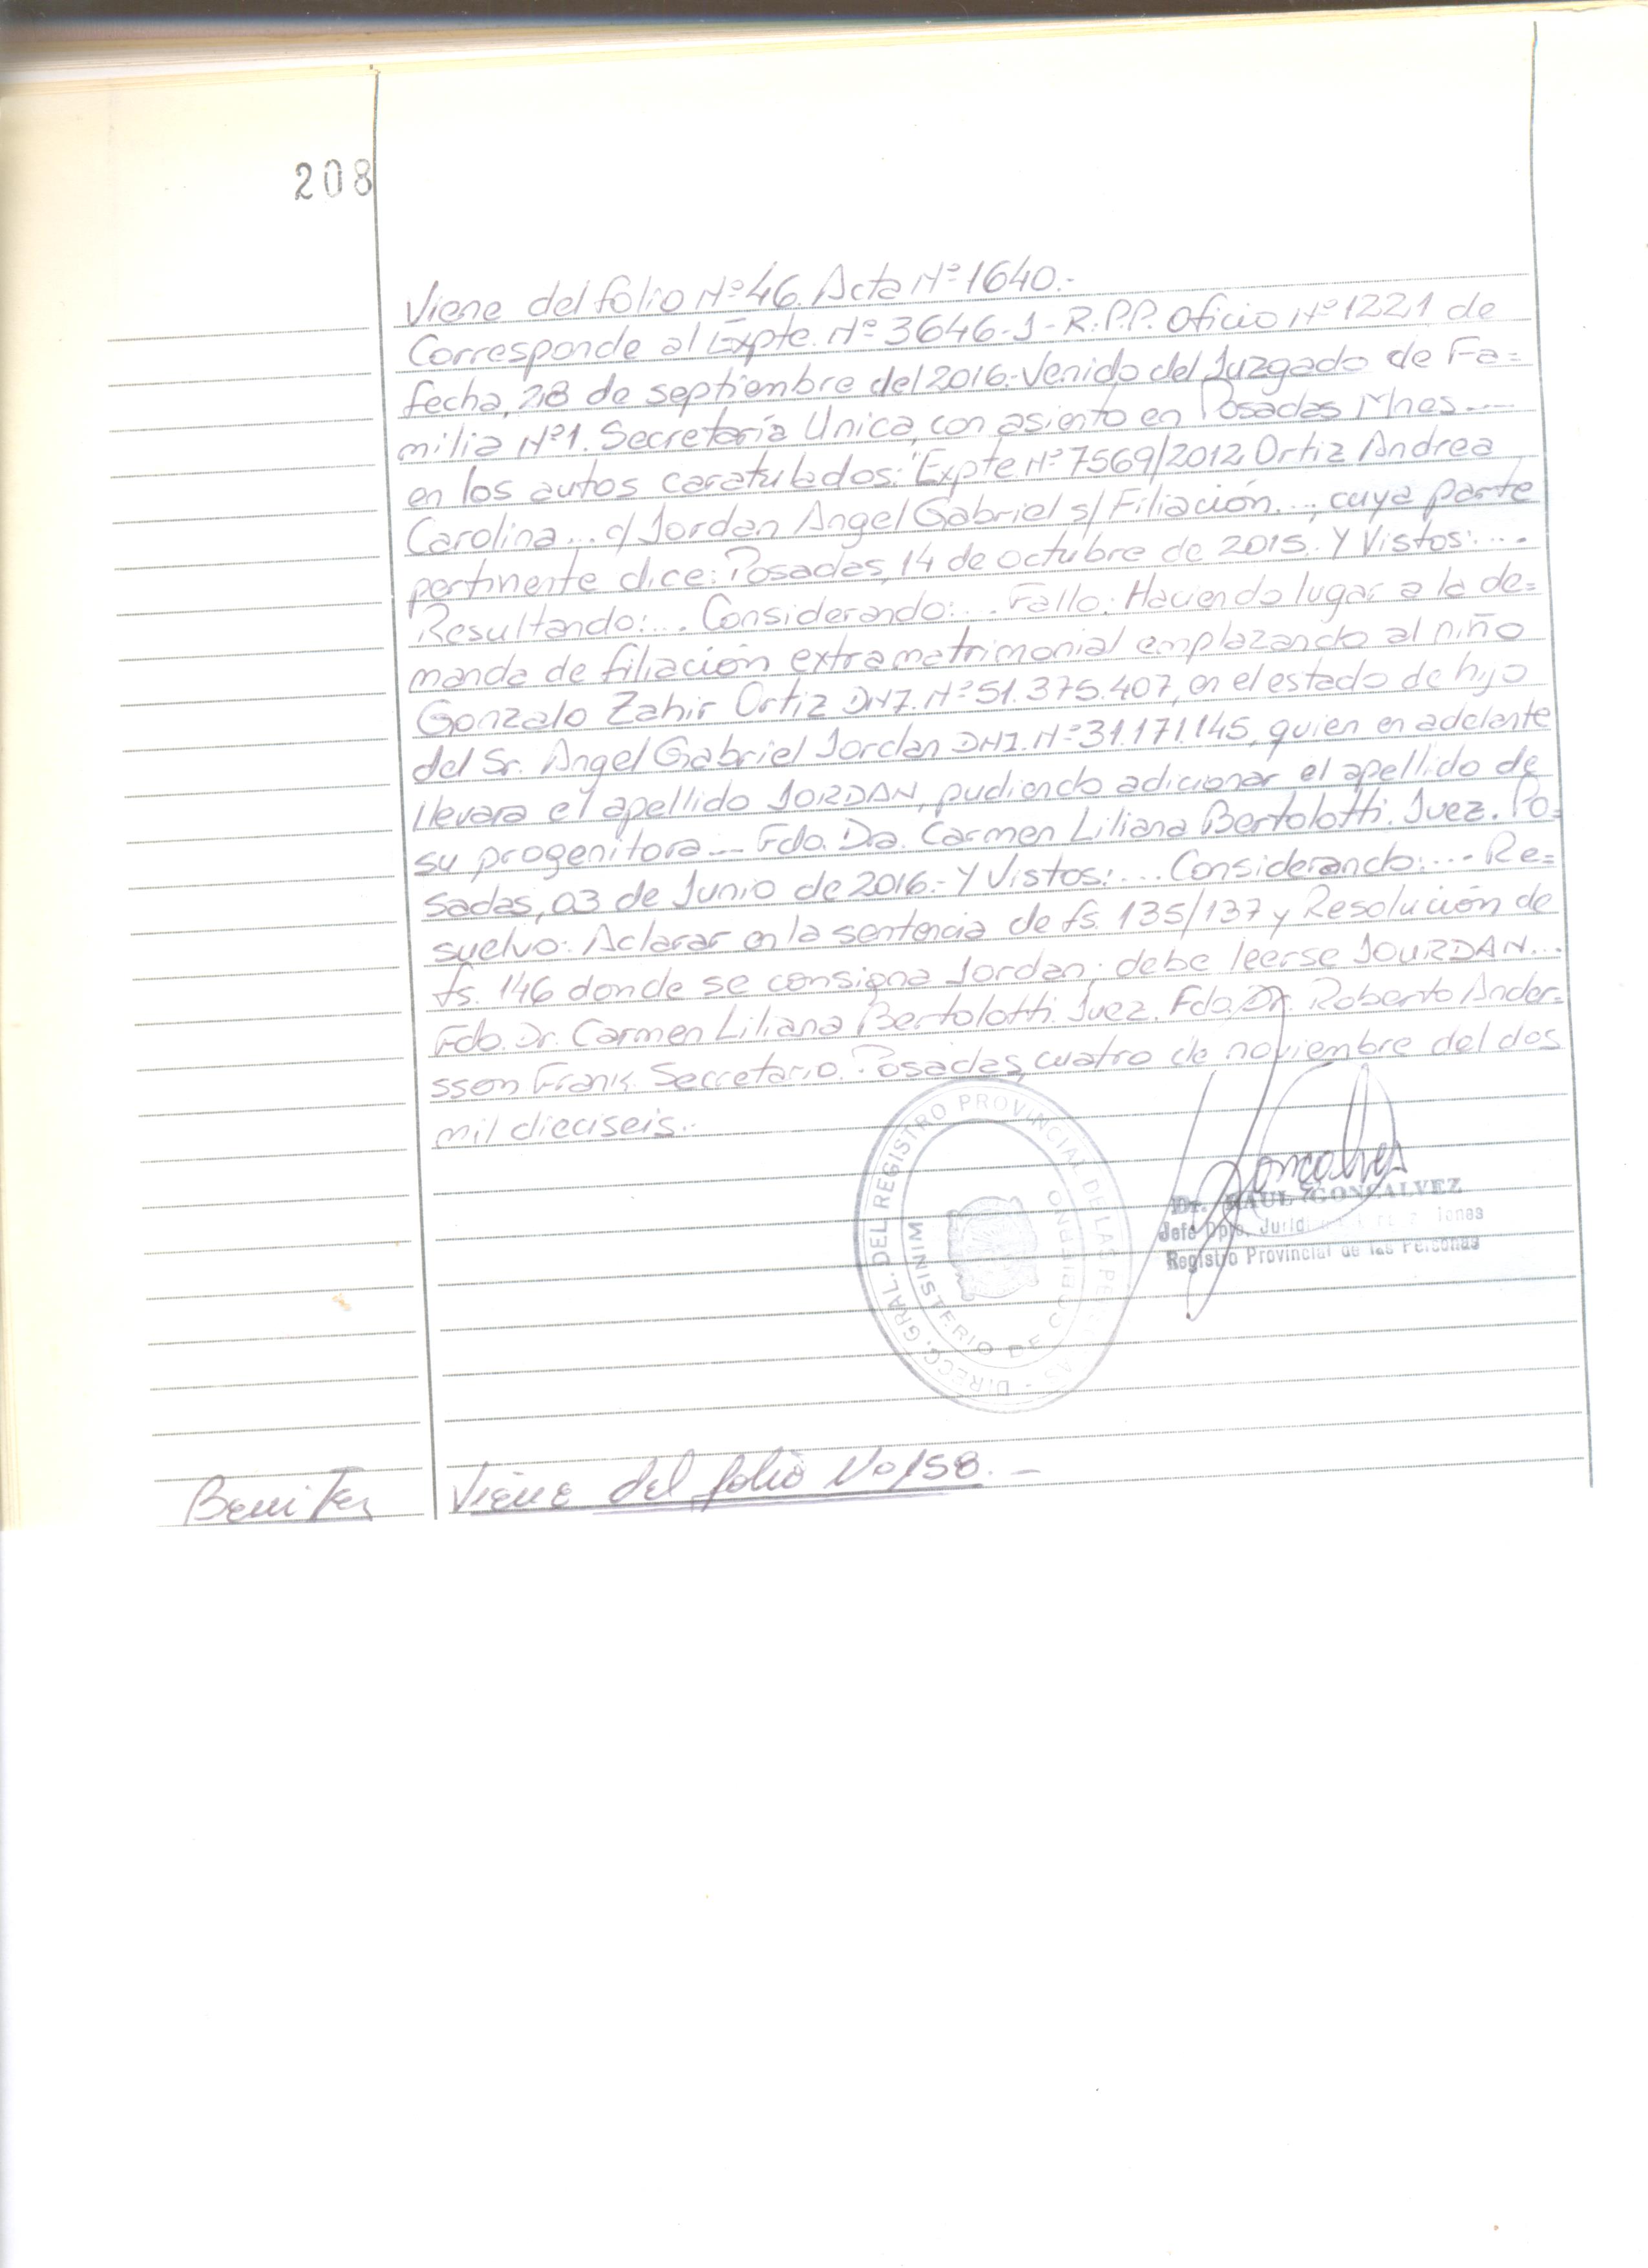 208
Viene del folio Nº 46. Acta Nº 1640.-
Corresponde al Expte. Nº 3646-J-R.P.P. Oficio Nº 1221 de
fecha, 28 de septiembre del 2016.- Venido del Juzgado de Fa=
milia Nº 1. Secretaría Unica, con asiento en Posadas Mnes...
en los autos caratulados: "Expte. Nº 7569/2012, Ortiz Andrea
Carolina... c/ Jordan Angel Gabriel s/ Filiación..., cuya parte
pertinente dice: Posadas, 14 de octubre de 2015. Y Vistos:...
Resultando:... Considerando:... Fallo: Haciendo lugar a la de=
manda de filiación extramatrimonial emplazando al niño
Gonzalo Zahir Ortiz DNI. Nº 51.375.407, en el estado de hijo
del Sr. Angel Gabriel Jordan DNI. Nº 31.171.145, quien en adelante
llevara el apellido JORDAN, pudiendo adicionar el apellido de
su progenitora... Fdo. Dra. Carmen Liliana Bertolotti. Juez. Po=
sadas, 03 de Junio de 2016.- Y Vistos:... Considerando:... Re=
suelvo: Aclarar en la sentencia de fs. 135/137 y Resolución de
fs. 146 donde se consigna Jordan; debe leerse JOURDAN...
Fdo. Dr. Carmen Liliana Bertolotti. Juez. Fdo. Dr. Roberto Ander=
sson Frank. Secretario. Posadas, cuatro de noviembre del dos
mil dieciseis.-
DIRECC. GRAL. DEL REGISTRO PROVINCIAL DE LAS PERSONAS -
MINISTERIO DE GOBIERNO
Goncalvez
Dr. RAUL GONCALVEZ
Jefe Dpto. Juríd
Registro Provincial de las Personas
Benitez
Viene del folio No 158. -